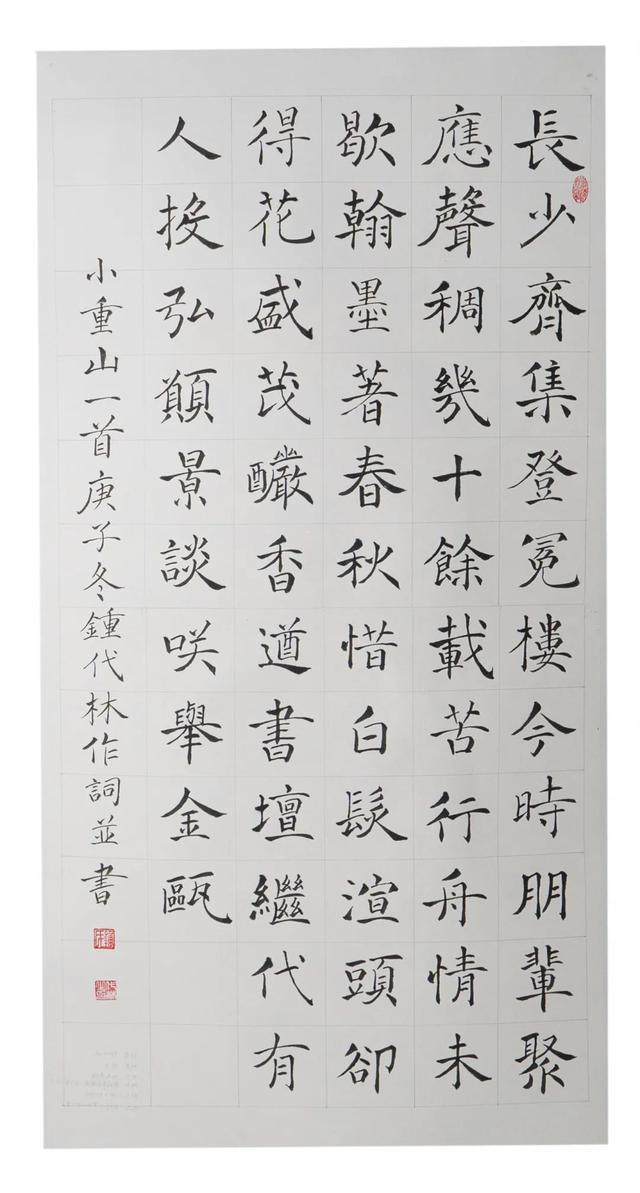 長少齊集登冕樓今時朋輩聚
應聲稠幾十餘載苦行舟情未
歇翰墨著春秋惜白髮渲頭卻
得花盛茂釅香遒書壇繼代有
人投弘願景談咲舉金甌
小重山一首庚子冬鍾代林作詞並書